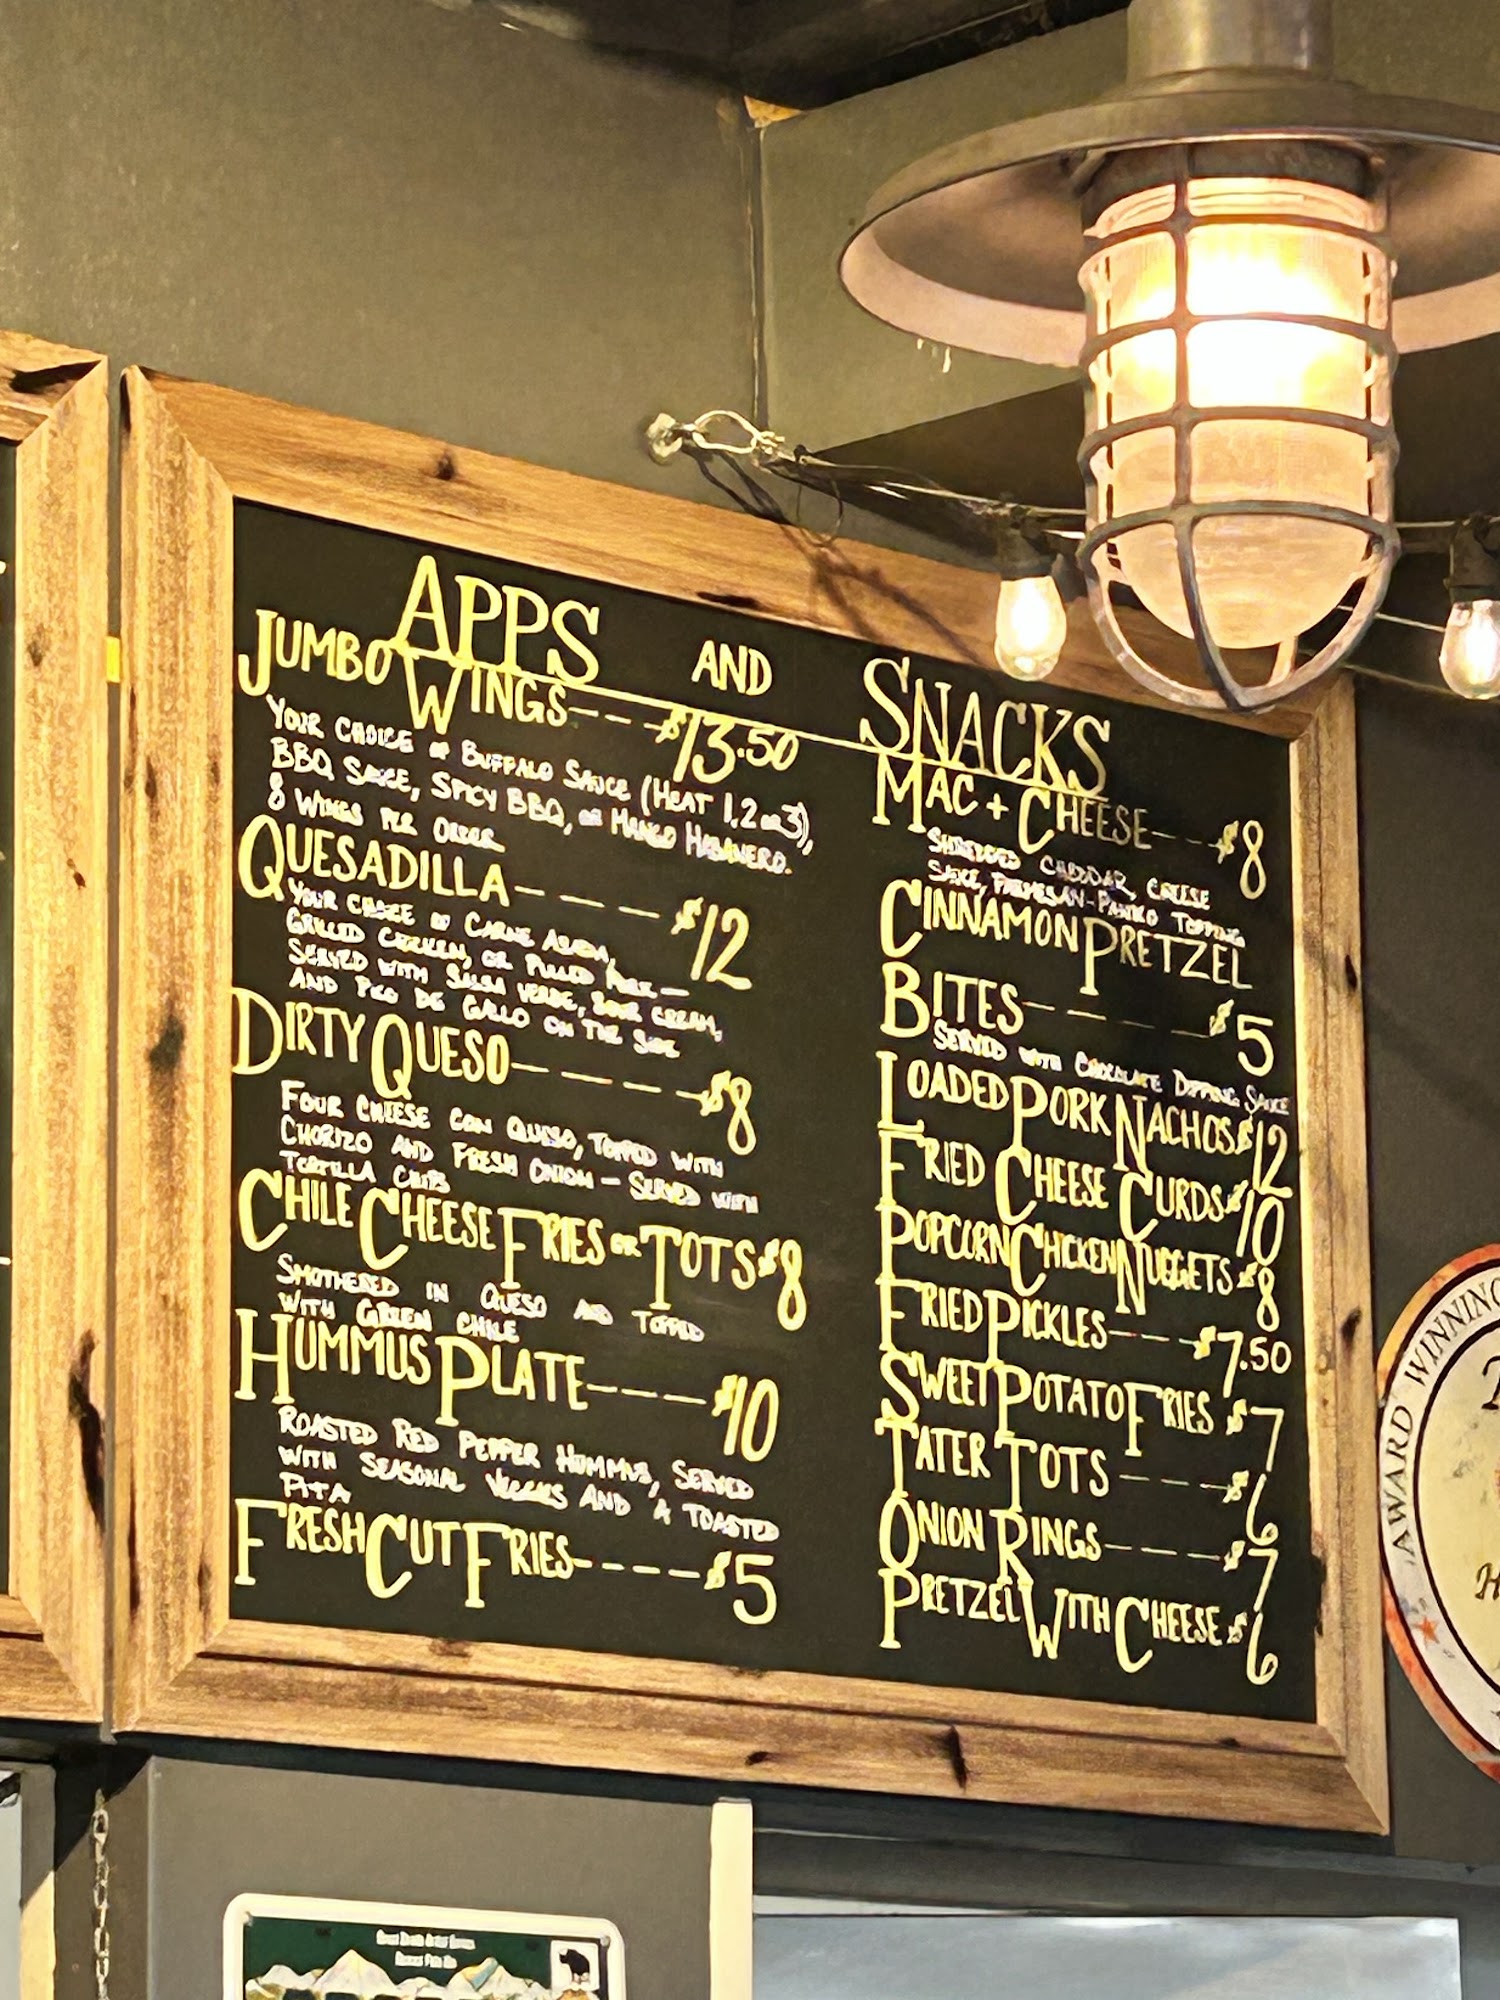 APPS AND SNACKS
JUMBO WINGS---$13.50
YOUR CHOICE OF BUFFALO SAUCE (HEAT 1,2 OR 3),
BBQ SAUCE, SPICY BBQ, OR MANGO HABANERO.
8 WINGS PER ORDER
QUESADILLA---- $12
YOUR CHOICE OF CARNE ASADA,
GRILLED CHICKEN, OR PULLED PORK—
SERVED WITH SALSA VERDE, SOUR CREAM,
AND PICO DE GALLO ON THE SIDE
DIRTY QUESO-----$8
FOUR CHEESE CON QUESO, TOPPED WITH
CHORIZO AND FRESH ONION - SERVED WITH
TORTILLA CHIPS
CHILE CHEESE FRIES OR TOTS $8
SMOTHERED IN QUESO AND TOPPED
WITH GREEN CHILE
HUMMUS PLATE----$10
ROASTED RED PEPPER HUMMUS, SERVED
WITH SEASONAL VEGGIES AND A TOASTED
PITA
FRESH CUT FRIES----$5
MAC + CHEESE---$8
SHREDDED CHEDDAR, CHEESE
SAUCE, PARMESAN-PANKO TOPPING
CINNAMON PRETZEL
BITES-----$5
SERVED WITH CHOCOLATE DIPPING SAUCE
LOADED PORK NACHOS $12
FRIED CHEESE CURDS $10
POPCORN CHICKEN NUGGETS $8
FRIED PICKLES---$7.50
SWEET POTATO FRIES $7
TATER TOTS ----$6
ONION RINGS----$7
PRETZEL WITH CHEESE $6
AWARD WINNING